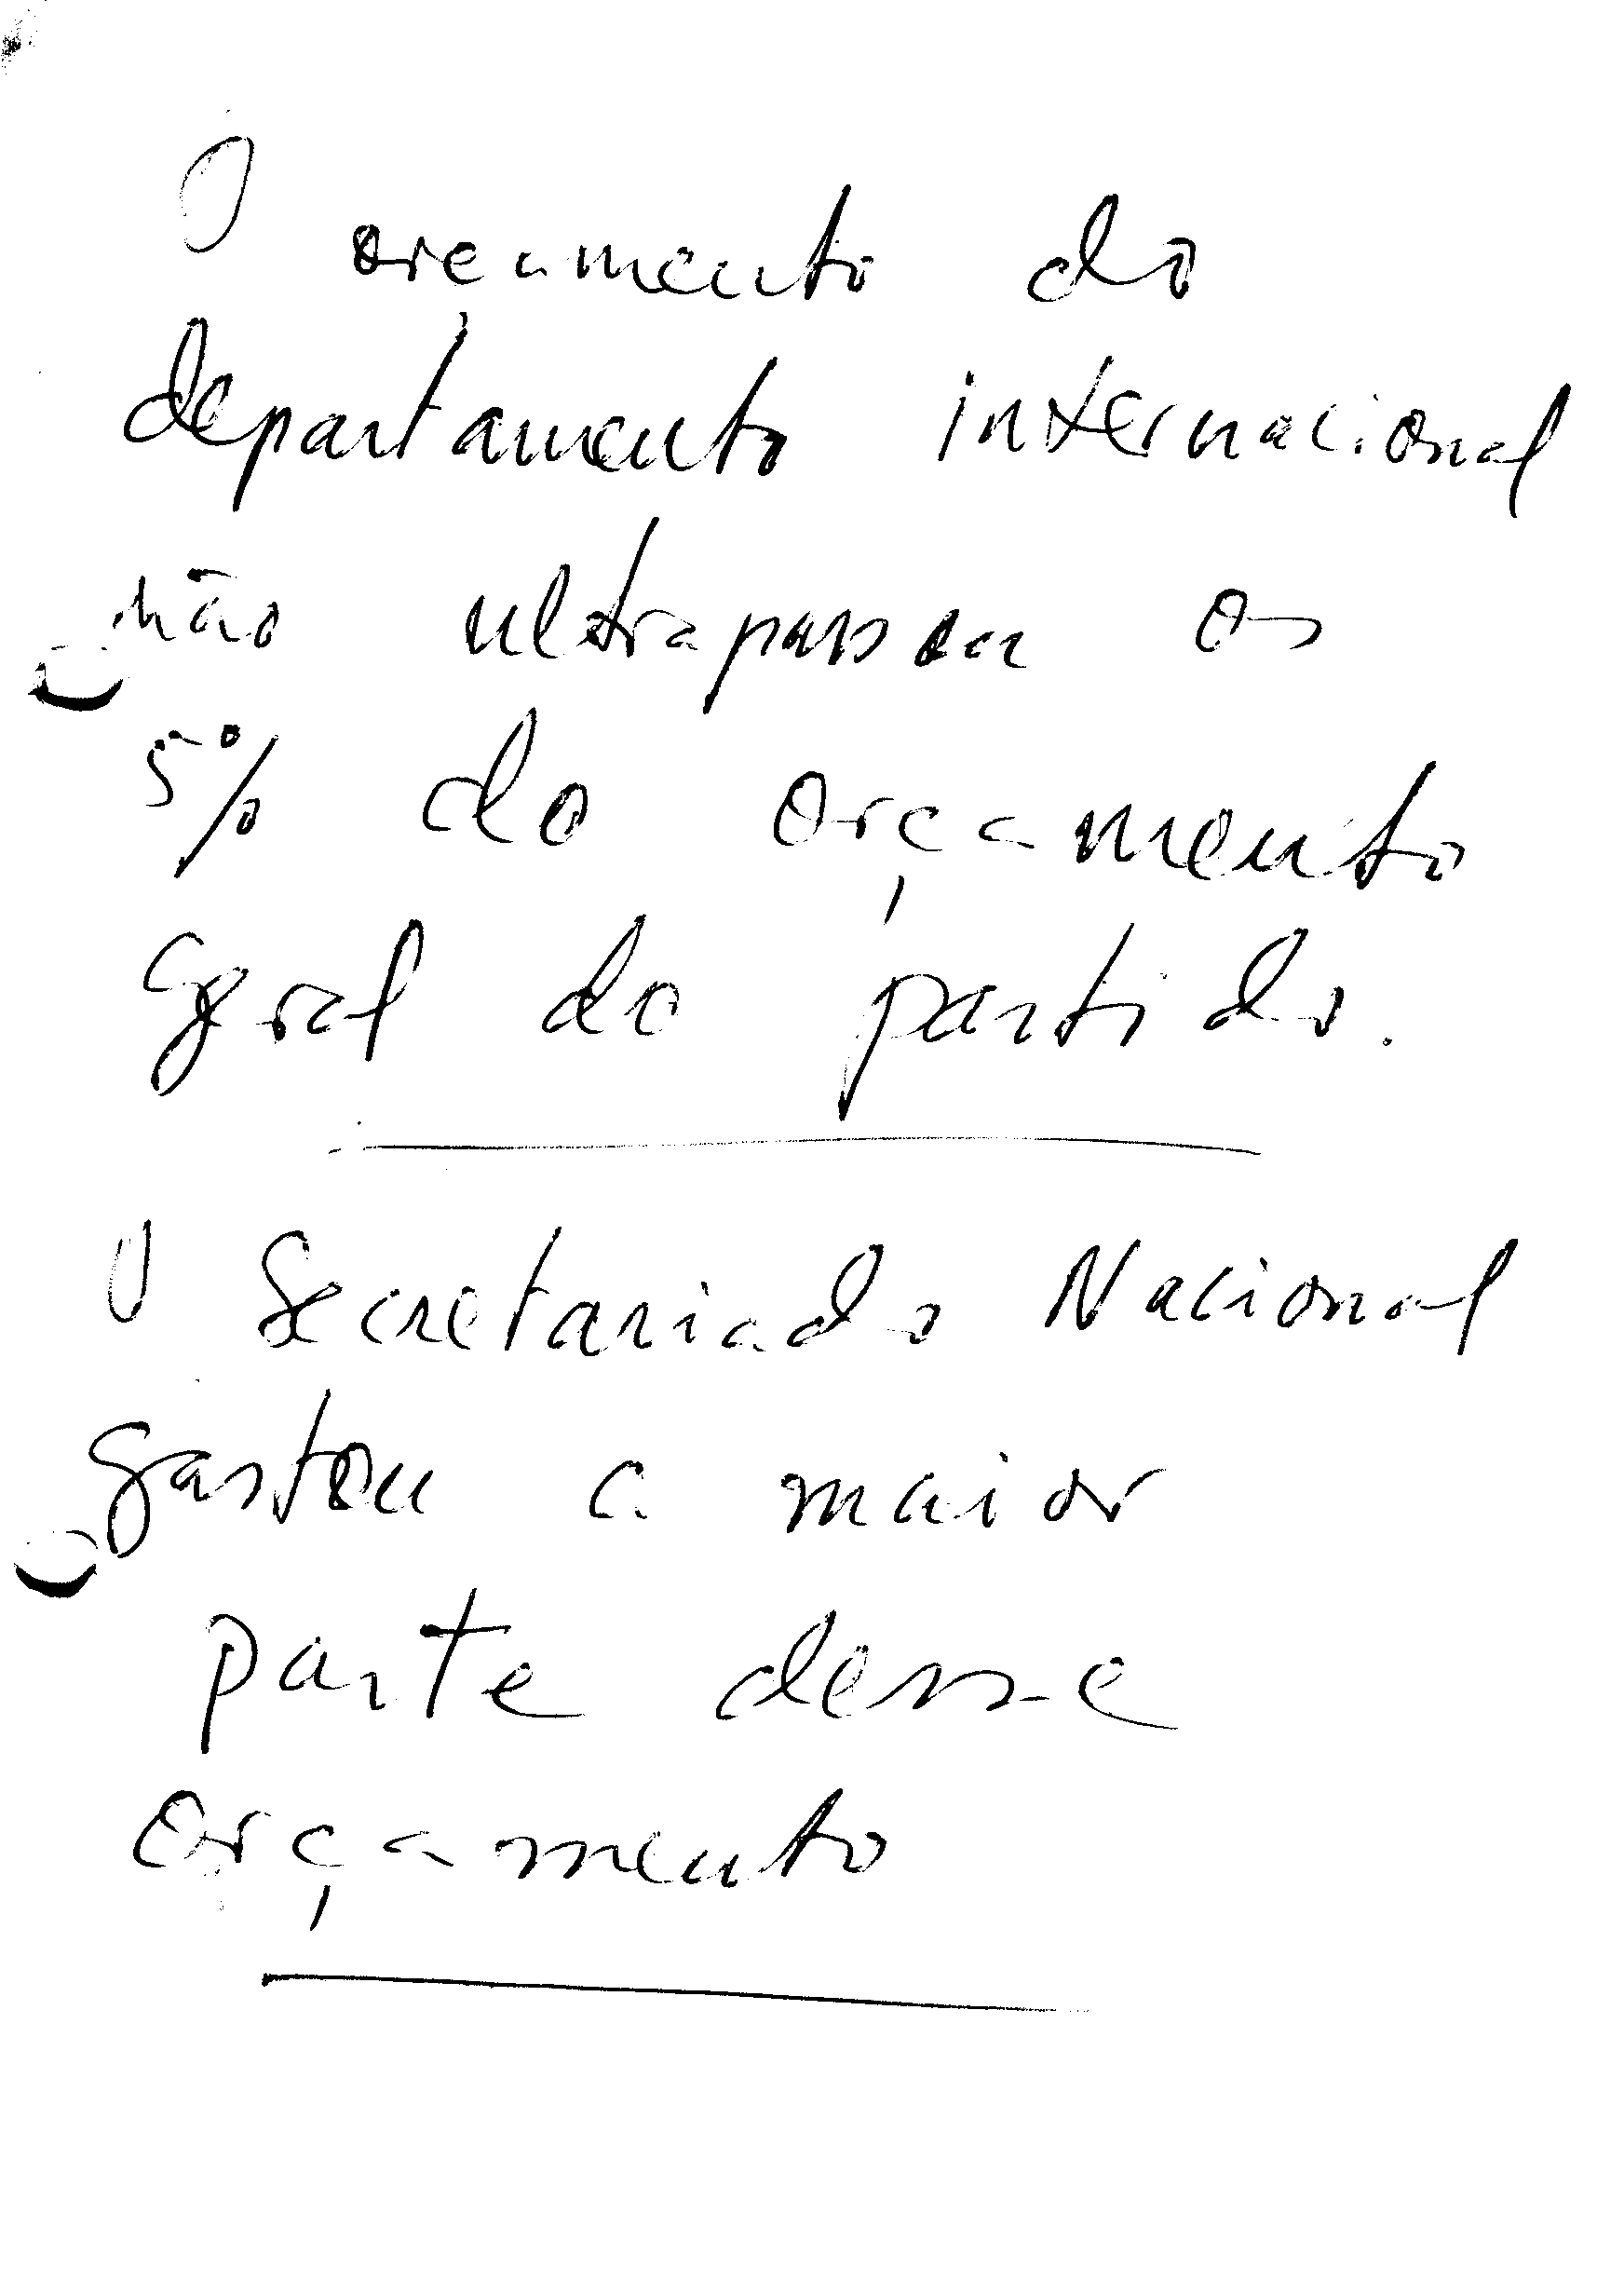 O orçamento do
departamento internacional
não ultrapassou os
5% do orçamento
geral do partido.
O Secretariado Nacional
gastou a maior
parte desse
orçamento